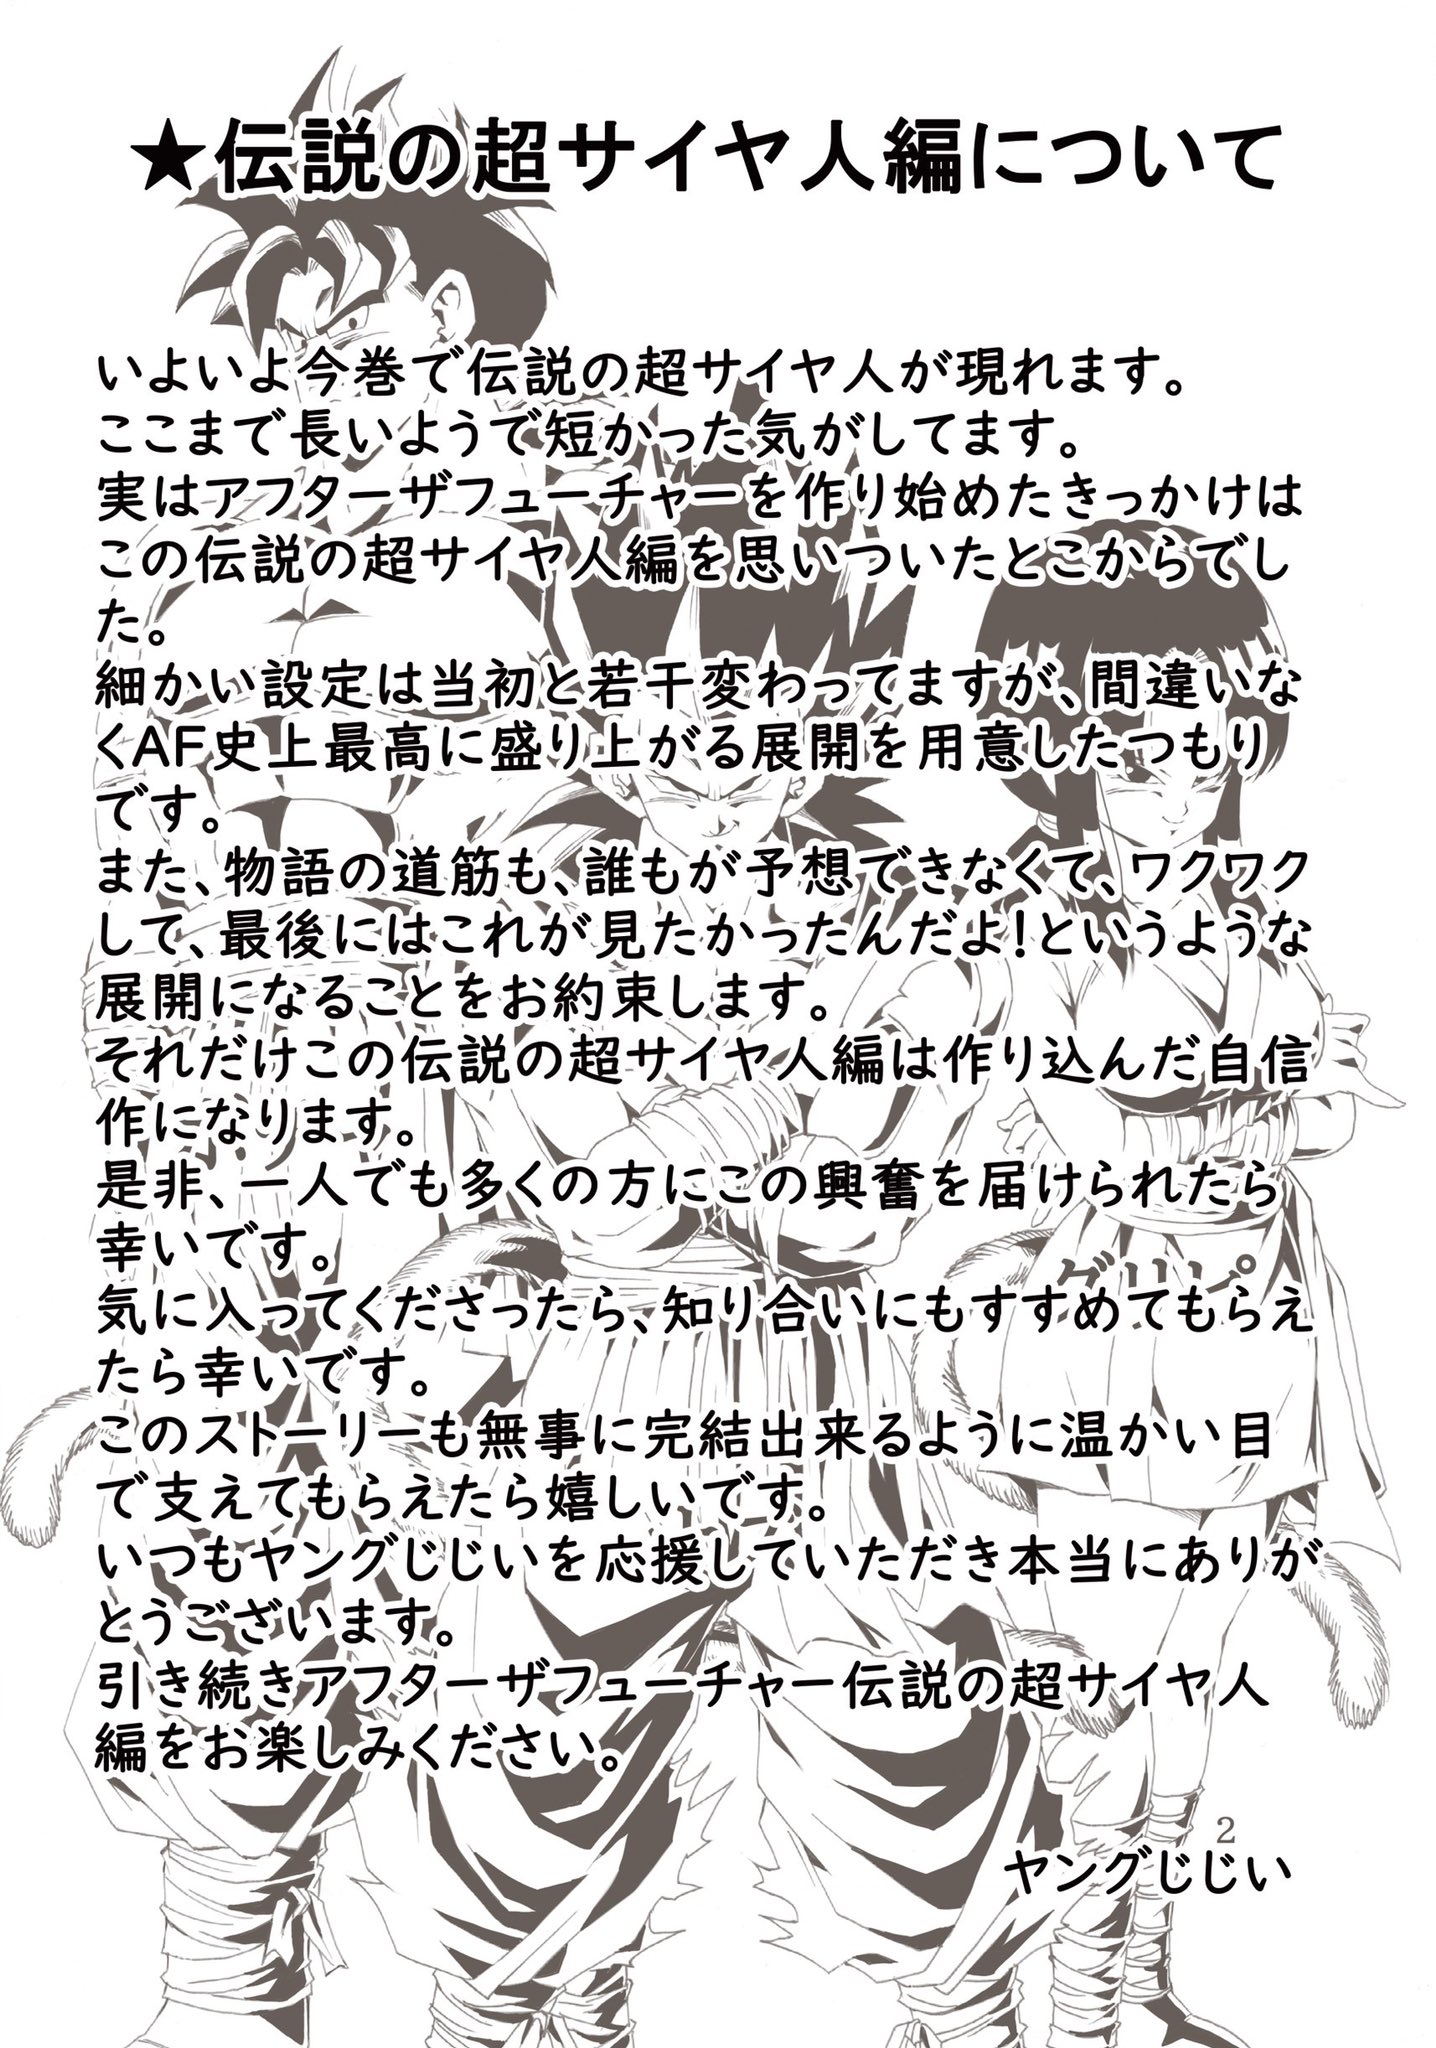 ★伝説の超サイヤ人編について
いよいよ今巻で伝説の超サイヤ人が現れます。
ここまで長いようで短かった気がしてます。
実はアフターザフューチャーを作り始めたきっかけは
この伝説の超サイヤ人編を思いついたとこからでし
た。
細かい設定は当初と若干変わってますが、間違いな
くAF史上最高に盛り上がる展開を用意したつもり
です。
また、物語の道筋も、誰もが予想できなくて、ワクワク
して、最後にはこれが見たかったんだよ！というような
展開になることをお約束します。
それだけこの伝説の超サイヤ人編は作り込んだ自信
作になります。
是非、一人でも多くの方にこの興奮を届けられたら
幸いです。
グリーピ
気に入ってくださったら、知り合いにもすすめてもらえ
たら幸いです。
このストーリーも無事に完結出来るように温かい目
で支えてもらえたら嬉しいです。
いつもヤングじじいを応援していただき本当にありが
とうございます。
引き続きアフターザフューチャー伝説の超サイヤ人
編をお楽しみください。
2
ヤングじじい